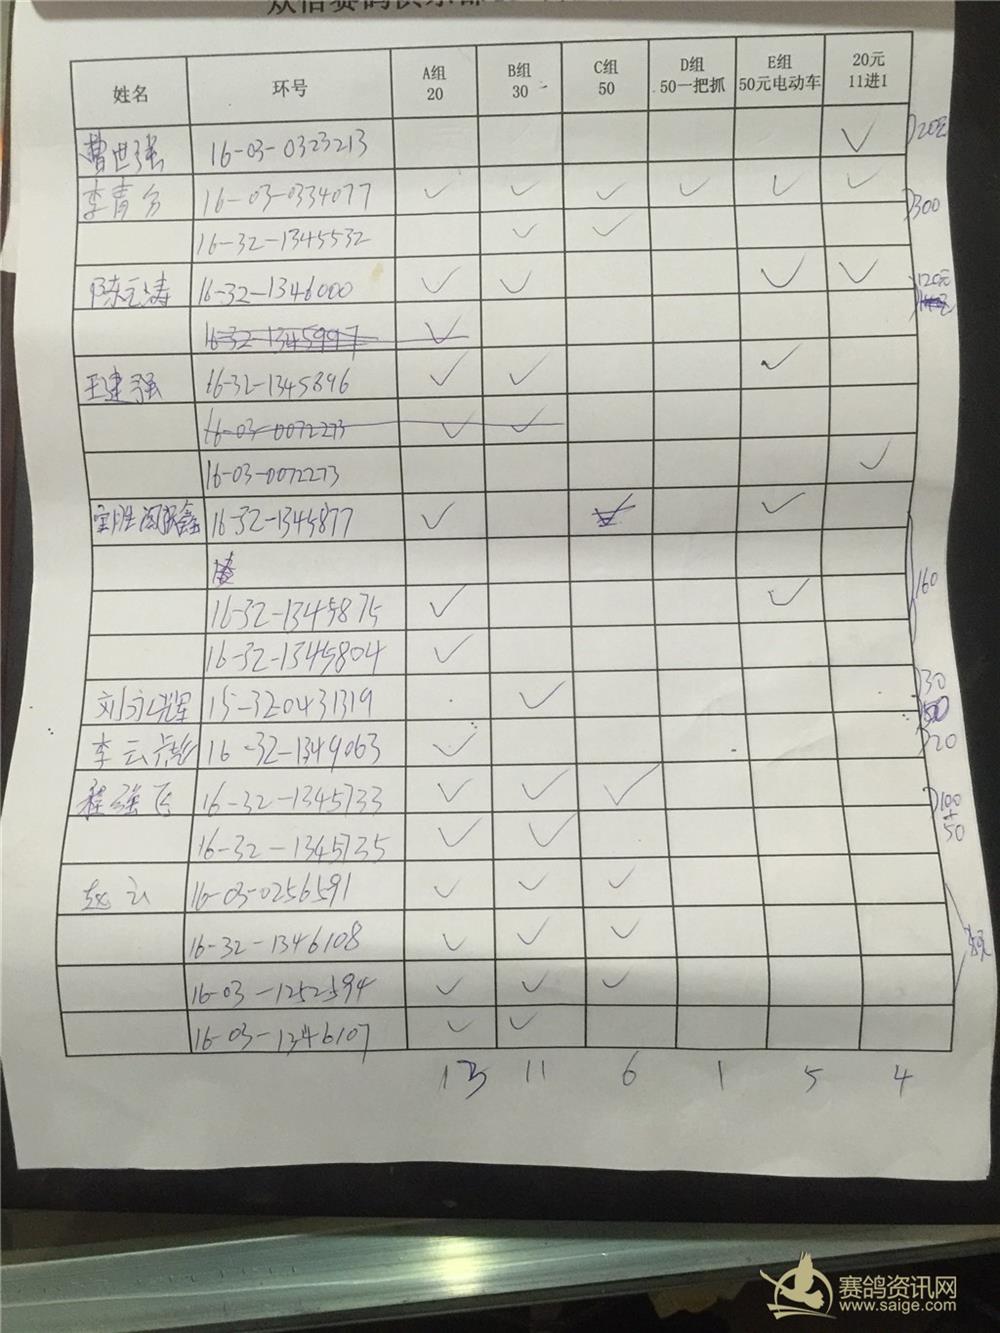 姓名 环号 A组 20 B组 30 C组 50 D组 50一把抓 E组 50元电动车 20元 11进1
曹世强 16-03-0323213 ✓ 20元
李青 16-03-0334077 ✓ ✓ ✓ ✓ ✓ ✓ 300
16-32-1345532 ✓ ✓
陈元涛 16-32-1346000 ✓ ✓ ✓ ✓ 120元
16-32-1345997 ✓
王建强 16-32-1345896 ✓ ✓ ✓
16-03-0072273 ✓ ✓
16-03-0072273 ✓
16-32-1345877 ✓ ✓
16-32-1345875 ✓ ✓ 160
16-32-1345804 ✓
15-32-0431319 ✓ 30
李云 16-32-1349063 ✓ 20
程强飞 16-32-1345733 ✓ ✓ ✓ 100+50
16-32-1345735 ✓ ✓
赵云 16-03-0256591 ✓ ✓ ✓
16-32-1346108 ✓ ✓ ✓
16-03-1252594 ✓ ✓ ✓
16-03-1346107 ✓ ✓
13 11 6 1 5 4
赛鸽资讯网
www.saige.com